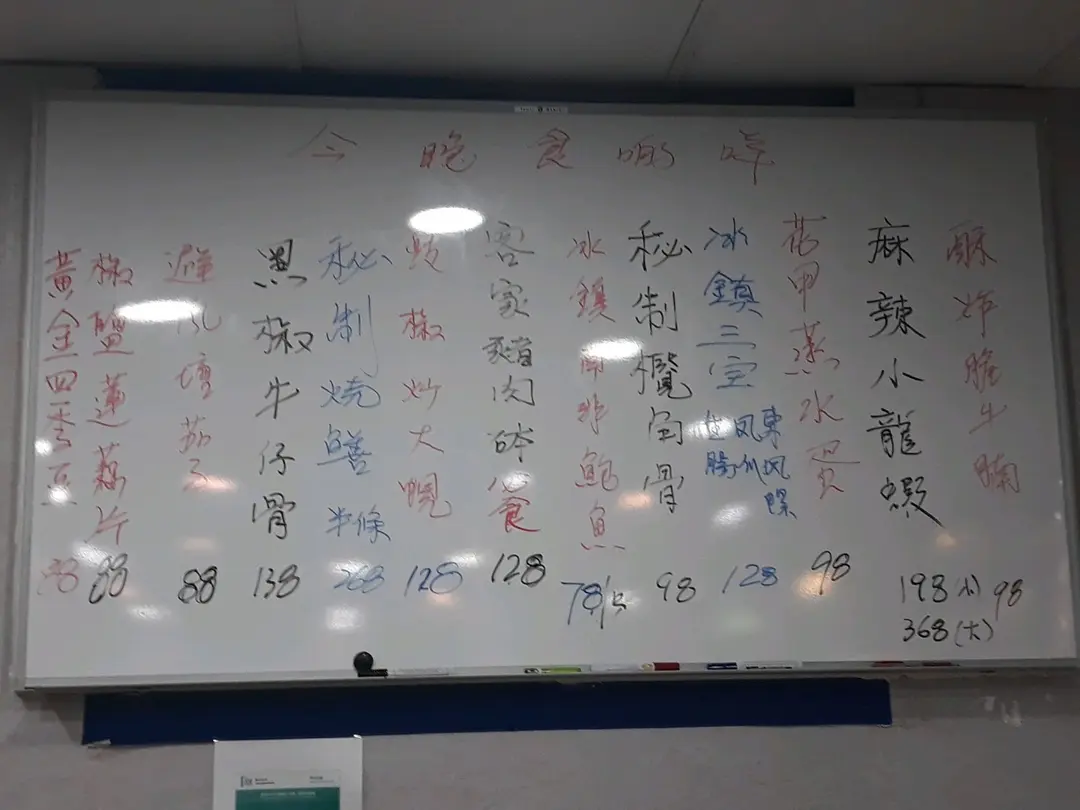 今晚食啲咩
酥炸脆牛腩
麻辣小龍蝦
花甲蒸水蛋
冰鎮三宝
東风螺
生腸
秘制欖角骨
冰鎮南非鮑魚
客家豬肉砵
豉椒炒大蜆
秘制燒鱔半條
黑椒牛仔骨
避風塘茄子
椒鹽蓮藕片
黃金四季豆
98
198(小)
368(大)
98
128
98
78/隻
128
128
268
138
88
88
88